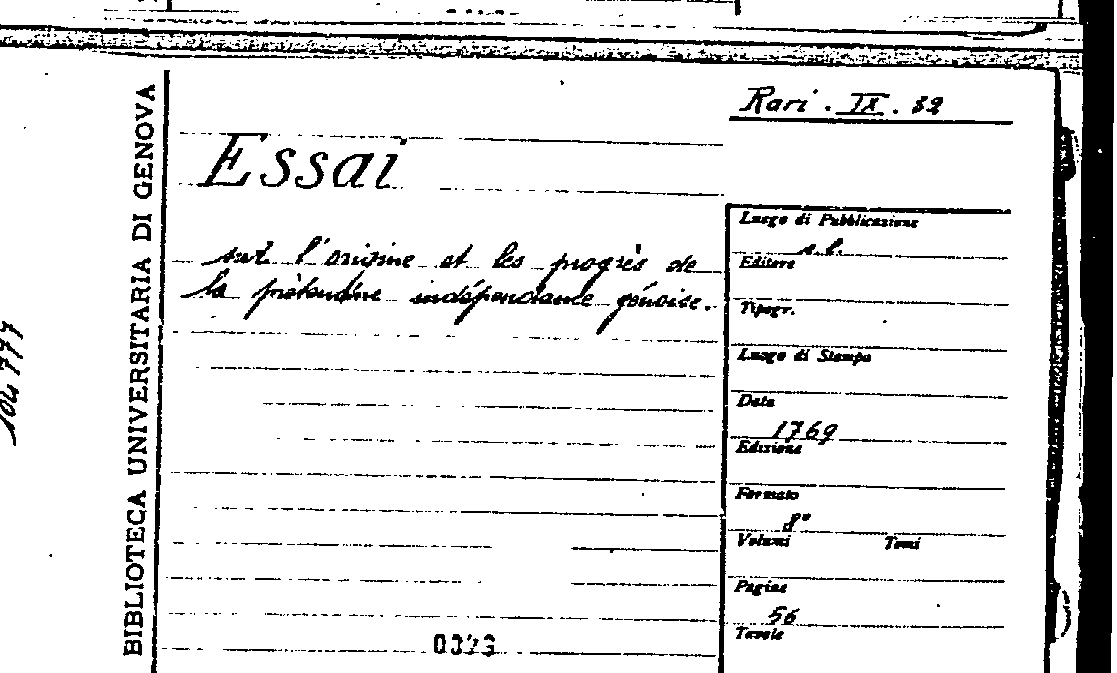 Rari . IX . 32
Essai
sur l'origine et les progrès de
la prètendue indépendance génoise.
BIBLIOTECA UNIVERSITARIA DI GENOVA
Luogo di Pubblicazione
s.l.
Editore
Tipogr.
Luogo di Stampa
Data
1769
Edizione
Formato
8°
Volumi Tomi
Pagine
56
Tavole
104777